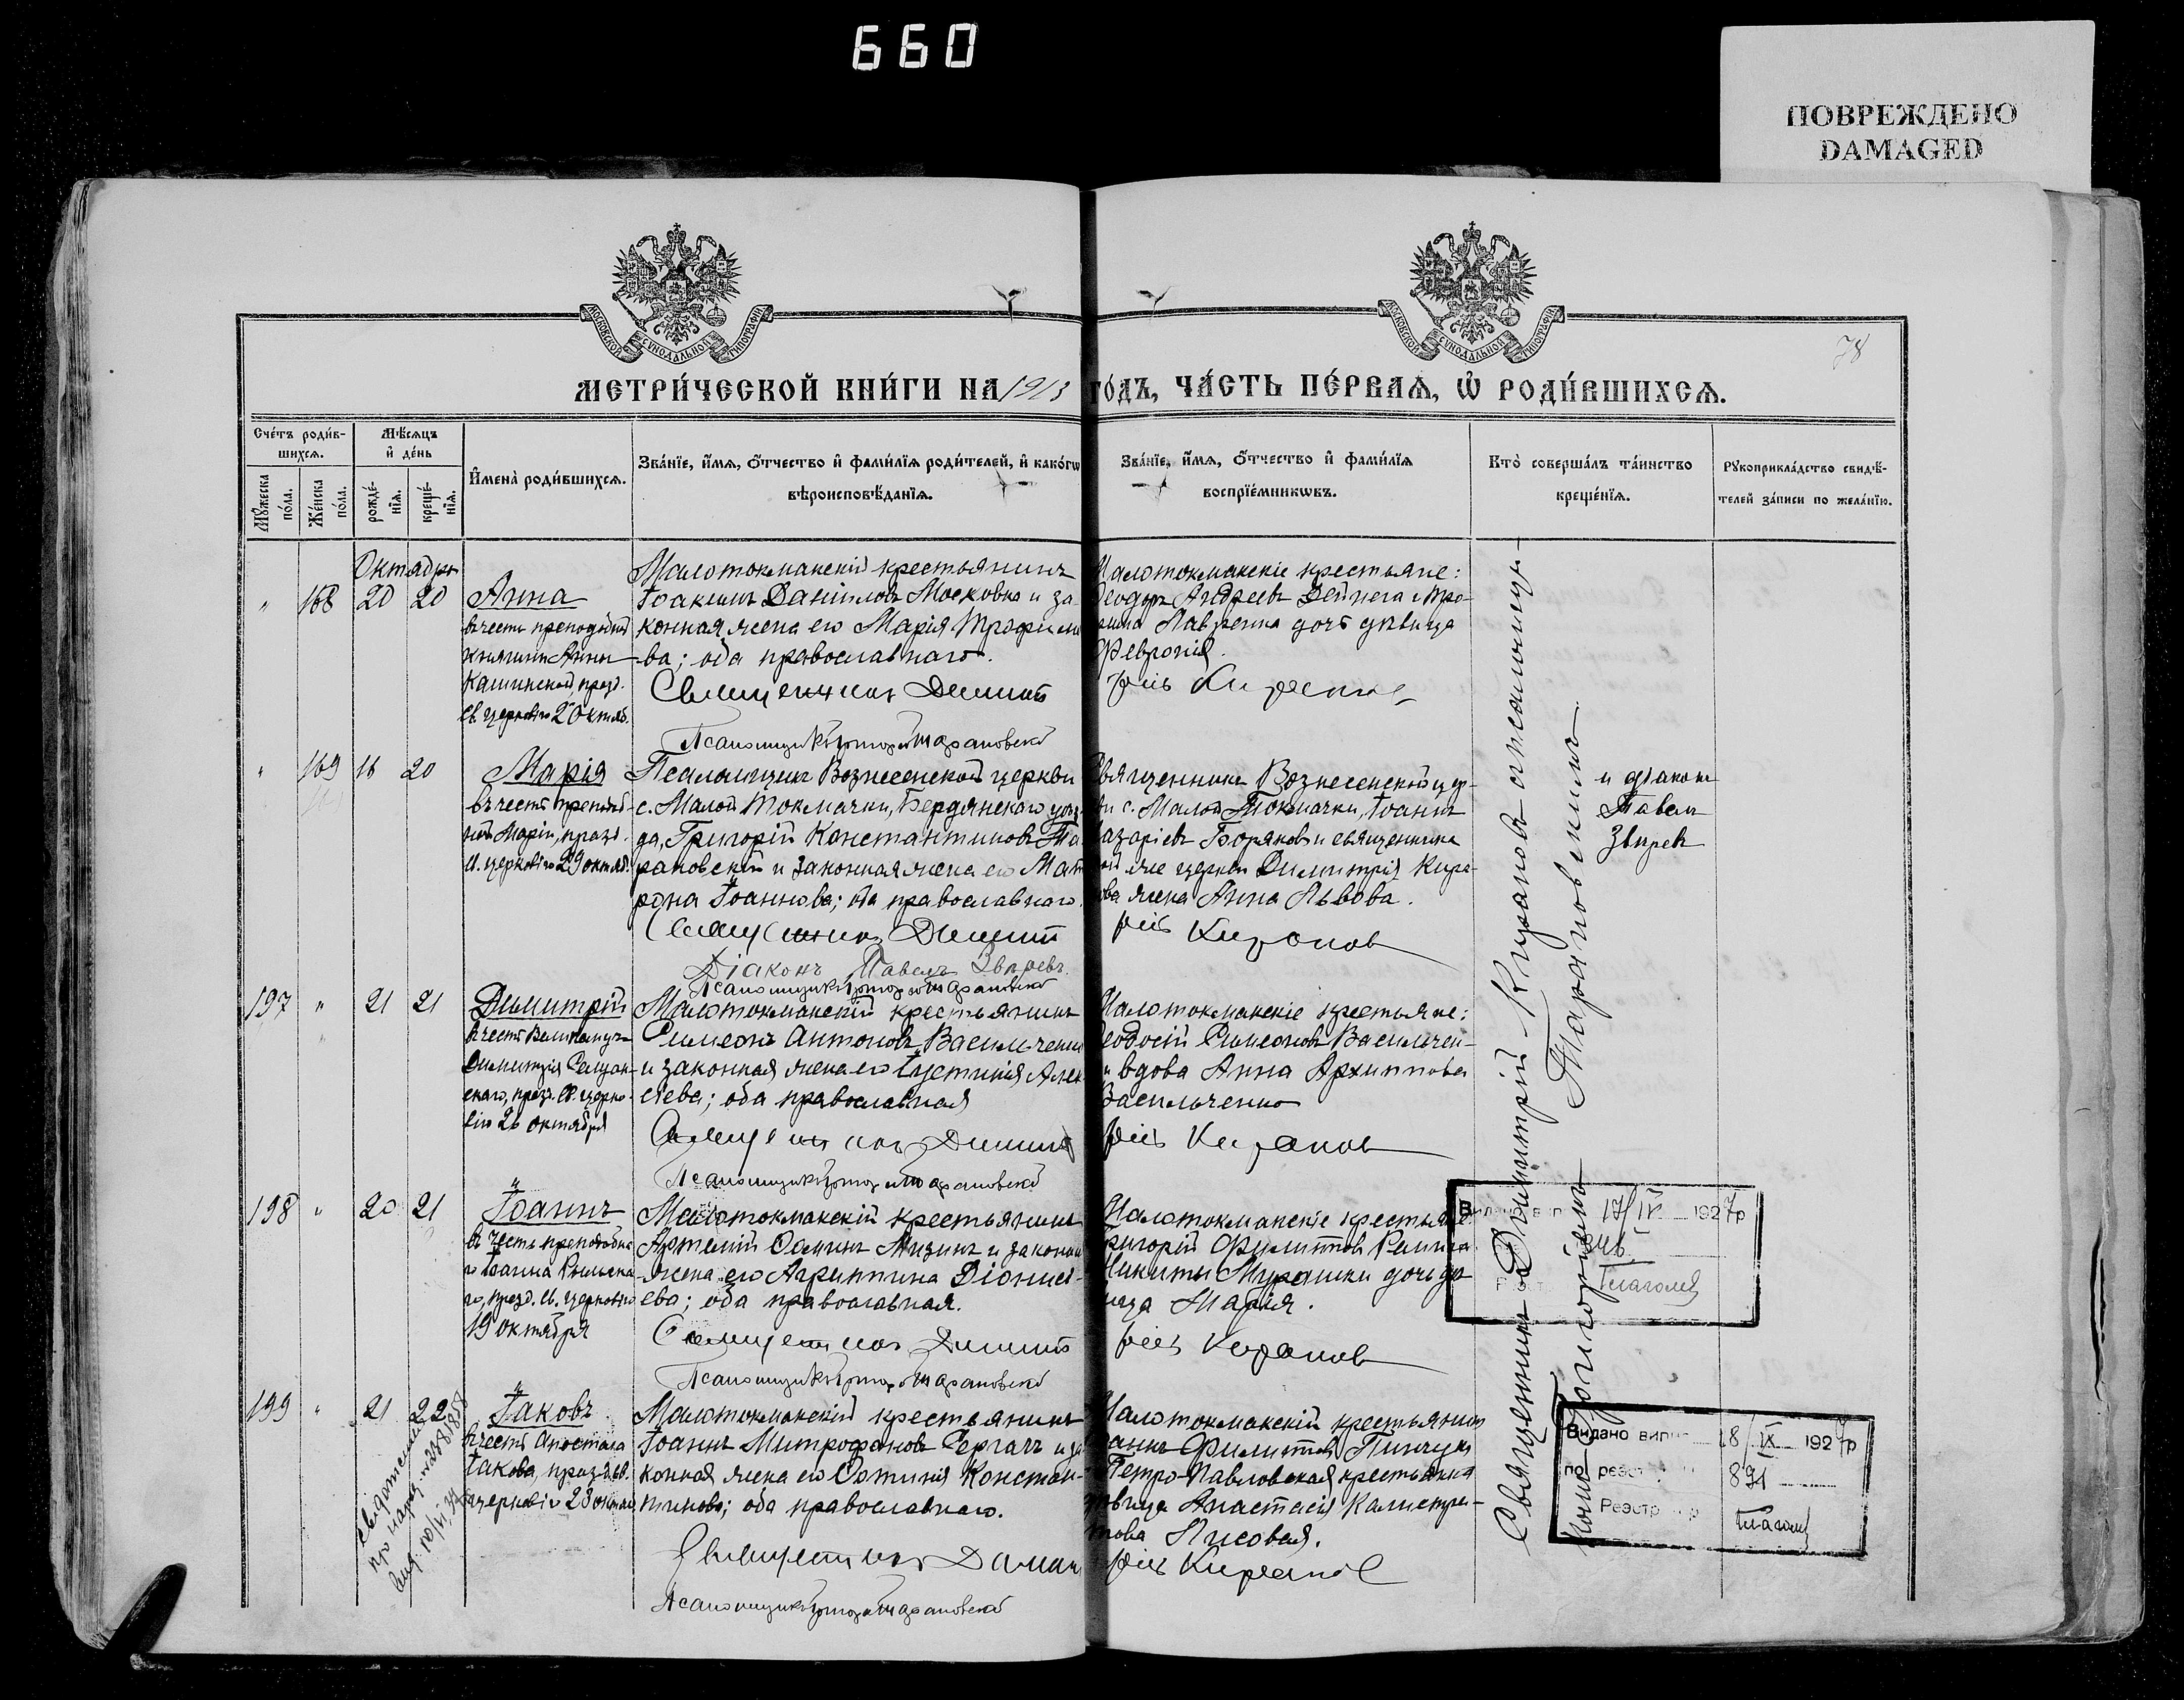 660
ПОВРЕЖДЕНО
DAMAGED
МОСКОВСКОЙ СУНОДАЛЬНОЙ ТИПОГРАФИИ
МОСКОВСКОЙ СУНОДАЛЬНОЙ ТИПОГРАФИИ
78
МЕТРИ́ЧЕСКОЙ КНИ́ГИ НА 1913 ГО́ДЪ, ЧА́СТЬ ПЕ́РВАѦ, Ѡ҆ РОДИ́ВШИХСѦ.
Сче́тъ роди́в-
шихсѧ.
Мѣ́сѧцъ
и҆ де́нь
Мꙋ́жеска
по́ла.
Же́нска
по́ла.
рожде́-
нїѧ.
креще́-
нїѧ.
И҆мена̀ роди́вшихсѧ.
Зва́нїе, и҆́мѧ, ѻ҆́тчество и҆ фами́лїѧ роди́телей, и҆ како́гѡ
вѣроисповѣ́данїѧ.
Зва́нїе, и҆́мѧ, ѻ҆́тчество и҆ фами́лїѧ
воспрїе́мникѡвъ.
Кто̀ соверша́лъ та́инство
креще́нїѧ.
Рꙋкоприкла́дство свидѣ́-
телей за́писи по жела́нїю.
Октябрь
" 168 20 20 Анна
въ честь преподобной
княгини Анны
Кашинской, празд.
св. церковію 2 октяб.
Малотокмакскій крестьянинъ
Іоакимъ Даніиловъ Московко и за-
конная жена его Марія Трофимо-
ва; оба православнаго.
Священникъ Димит
Псаломщикъ Григорій Тарановскій
Малотокмакскіе крестьяне:
Ѳеодоръ Андреевъ Дейнега и Тро-
Лавренка дочь дѣвица
Февронія.
рій Кирановъ
" 169 16 20 Марія
въ честь преподоб-
ной Маріи, празд.
св. церковію 29 октяб.
Псаломщикъ Вознесенской церкви
с. Малой Токмачки, Бердянскаго уѣз-
да, Григорій Константиновъ Та-
рановскій и законная жена его Мат-
рона Іоаннова; оба православнаго.
Священникъ Димит
Діаконъ Павелъ Звѣревъ.
Псаломщикъ Григорій Тарановскій
Священникъ Вознесенской цер-
кви с. Малой Токмачки, Іоаннъ
Лазаріевъ Боряковъ и священника
той же церкви Димитрія Кира-
нова жена Анна Львова.
рій Кирановъ
и діаконъ
Павелъ
Звѣревъ
197 " 21 21 Димитрій
въ честь Великомуч.
Димитрія Солун-
скаго, празд. св. церко-
вію 26 октября
Малотокмакскій крестьянинъ
Симеонъ Антоновъ Васильченко
и законная жена его Іустинія Алек-
сѣева; оба православная
Священникъ Димит
Псаломщикъ Григорій Тарановскій
Малотокмакскіе крестьяне:
Ѳеодосій Симеоновъ Васильчен-
и вдова Анна Архиппова
Васильченко
рій Кирановъ
198 " 20 21 Іоаннъ
въ честь преподобна-
го Іоанна Рыльска-
го, празд. св. церковію
19 октября
Малотокмакскій крестьянинъ
Артемій Мизинъ и законная
жена его Агриппина Діонисі-
ева; оба православная.
Священникъ Димит
Псаломщикъ Григорій Тарановскій
Малотокмакскіе крестьяне:
Григорій Филипповъ
Никиты Мурашки дочь дѣ-
вица Марія.
рій Кирановъ
199 " 21 22 Іаковъ
въ честь Апостола
Іакова, празд. св.
церковію 23 октяб.
Малотокмакскій крестьянинъ
Іоаннъ Митрофановъ Сергачъ и за-
конная жена его Фотинія Констан-
тинова; оба православнаго.
Священникъ Димит
Псаломщикъ Григорій Тарановскій
Малотокмакскій крестьянинъ
Іоаннъ Филипповъ Пинчукъ
Петро-Павловская крестьянка
дѣвица Анастасія Калистра-
това Лисовая.
рій Кирановъ
Священникъ Димитрій Кирановъ съ псаломщи-
комъ Григоріемъ Тарановскимъ.
Видано вип 17/IV 1927р
Видано вип 28/IX 1927р
по реєст 891
Реєстратор